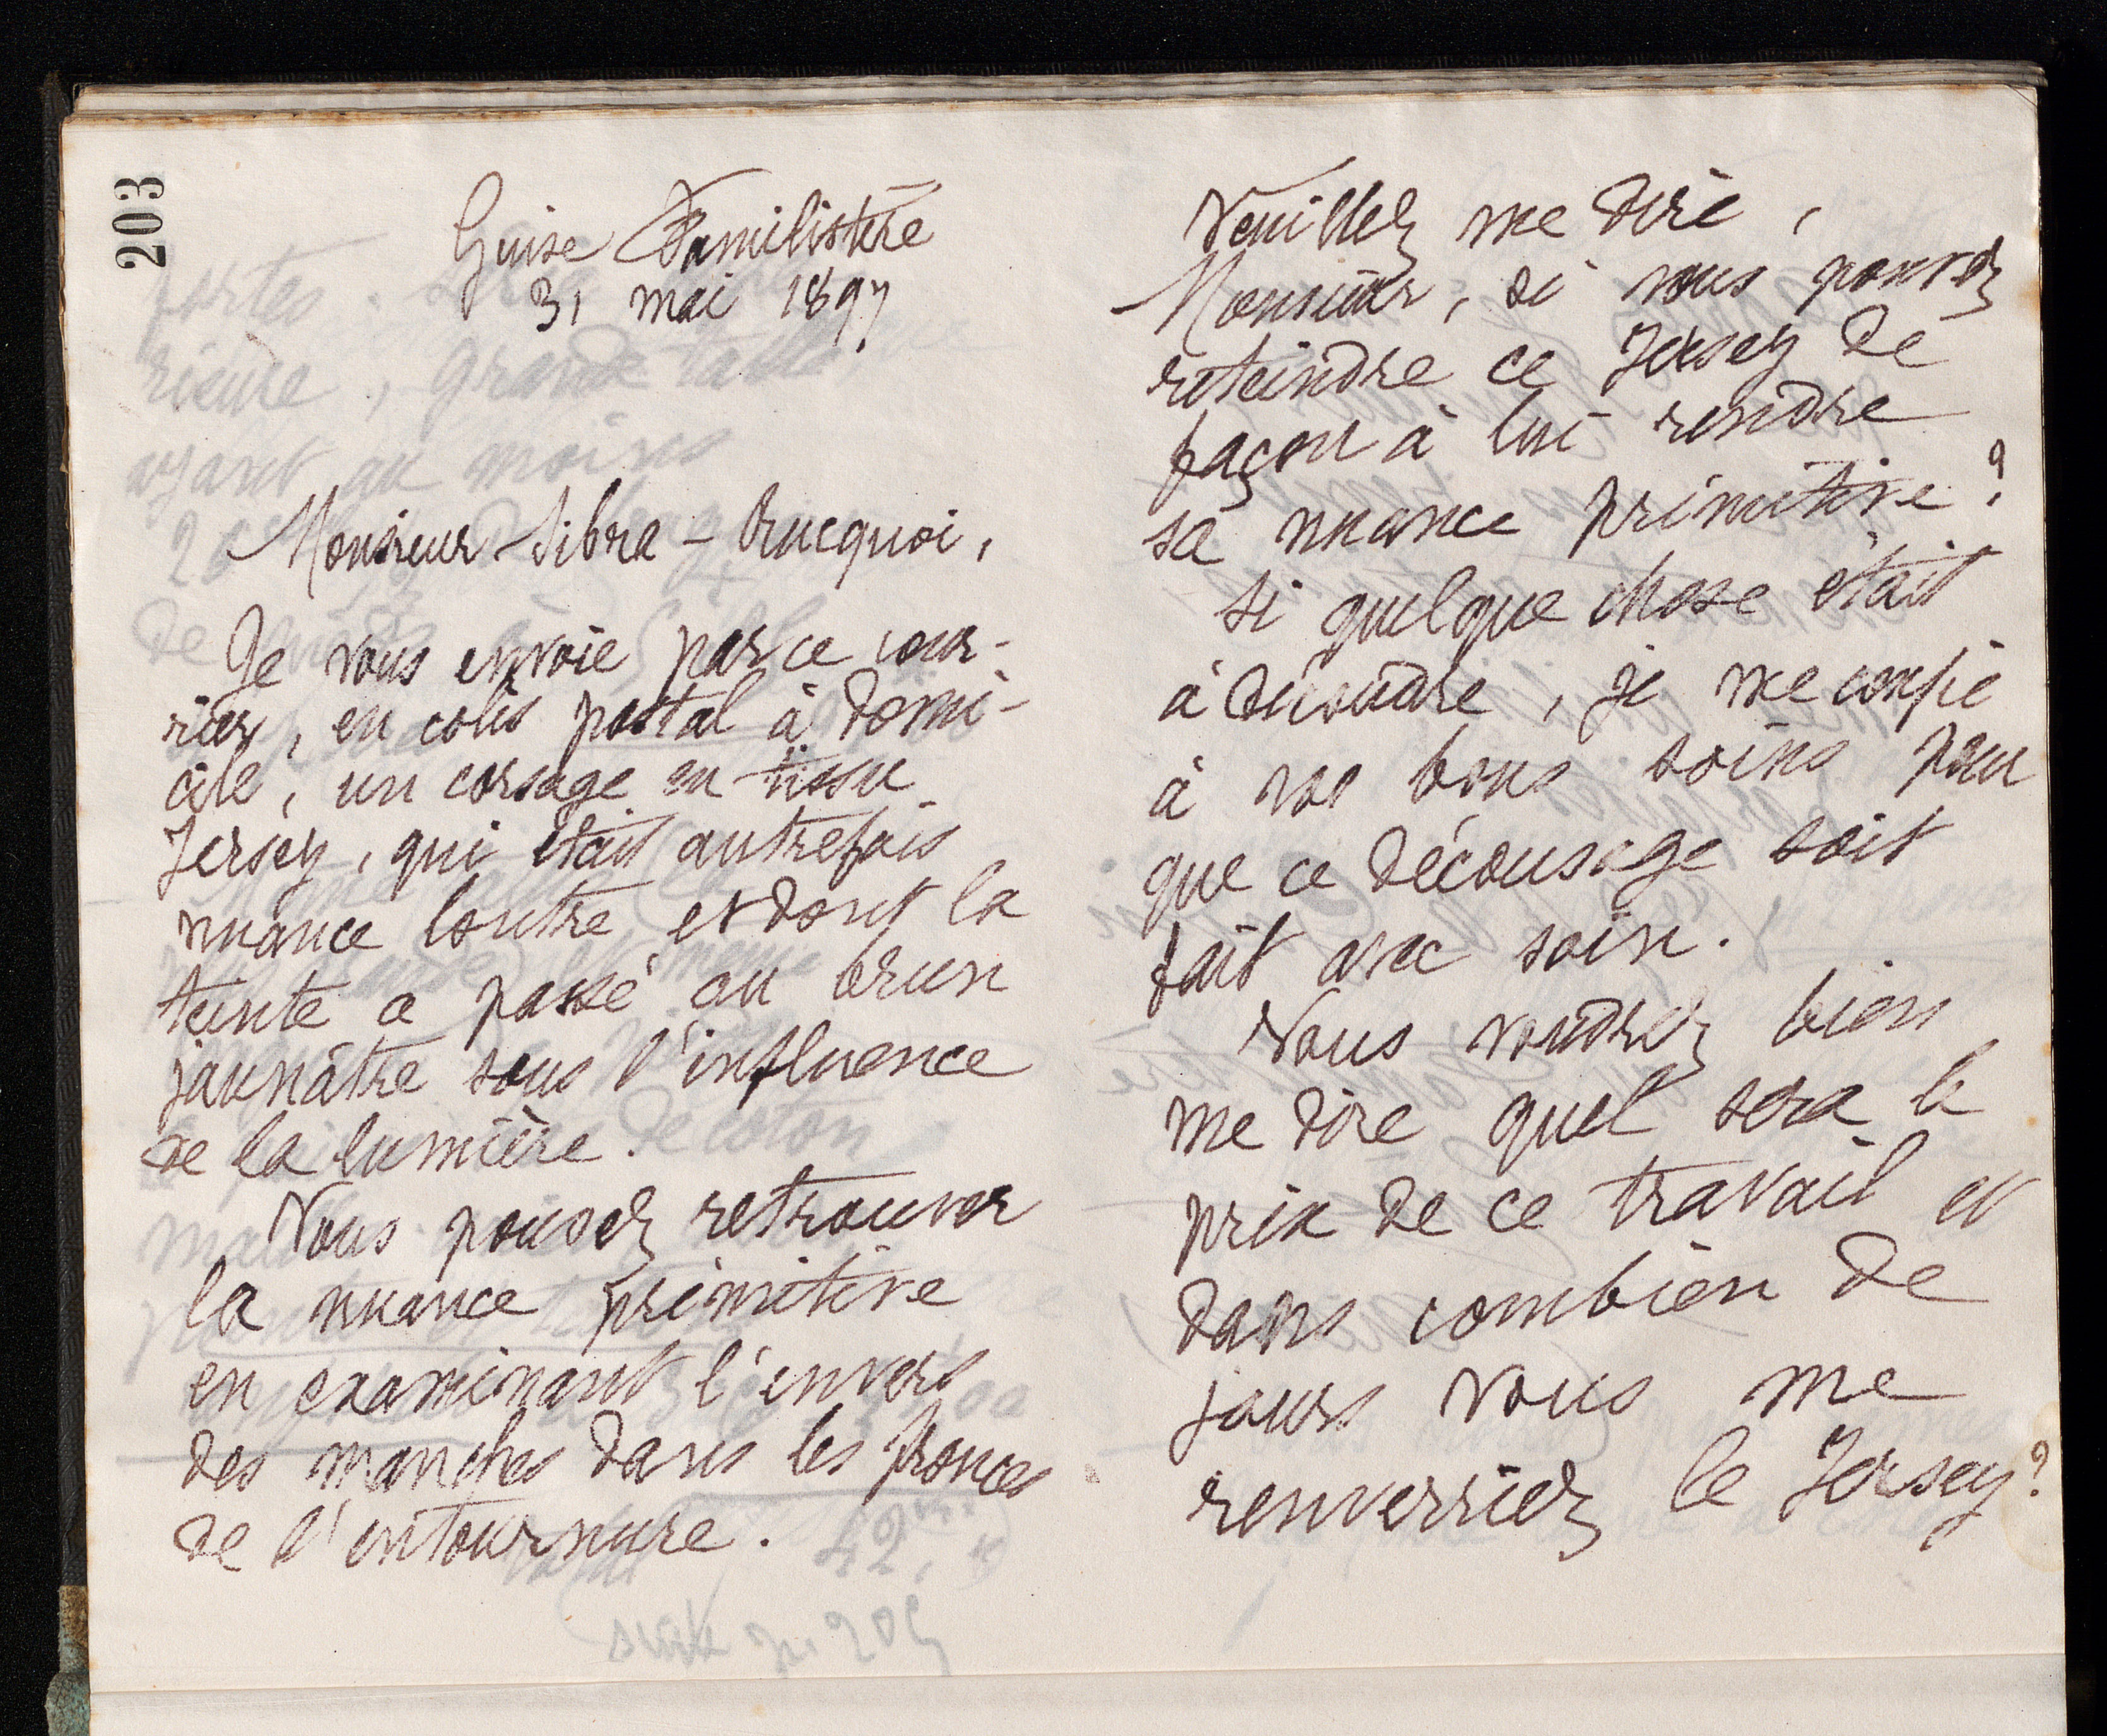 203
Guise Familistère
31 mai 1897
Monsieur Sibra-Bucquoi,
Je vous envoie par ce cour-
rier, en colis postal à domi-
cile, un corsage en tissu
Jersey, qui était autrefois
nuance loutre et dont la
teinte a passé au brun
jaunâtre sous l'influence
de la lumière.
Vous pouvez retrouver
la nuance primitive
en examinant l'envers
des manches dans les fronces
de l'entournure.
Veuillez me dire,
Monsieur, si vous pouvez
reteindre ce Jersey de
façon à lui rendre
sa nuance primitive?
Si quelque chose était
à découdre, je me confie
à vos bons soins pour
que ce décousage soit
fait avec soin.
Vous voudrez bien
me dire quel sera le
prix de ce travail et
dans combien de
jours vous me
renverriez le Jersey?